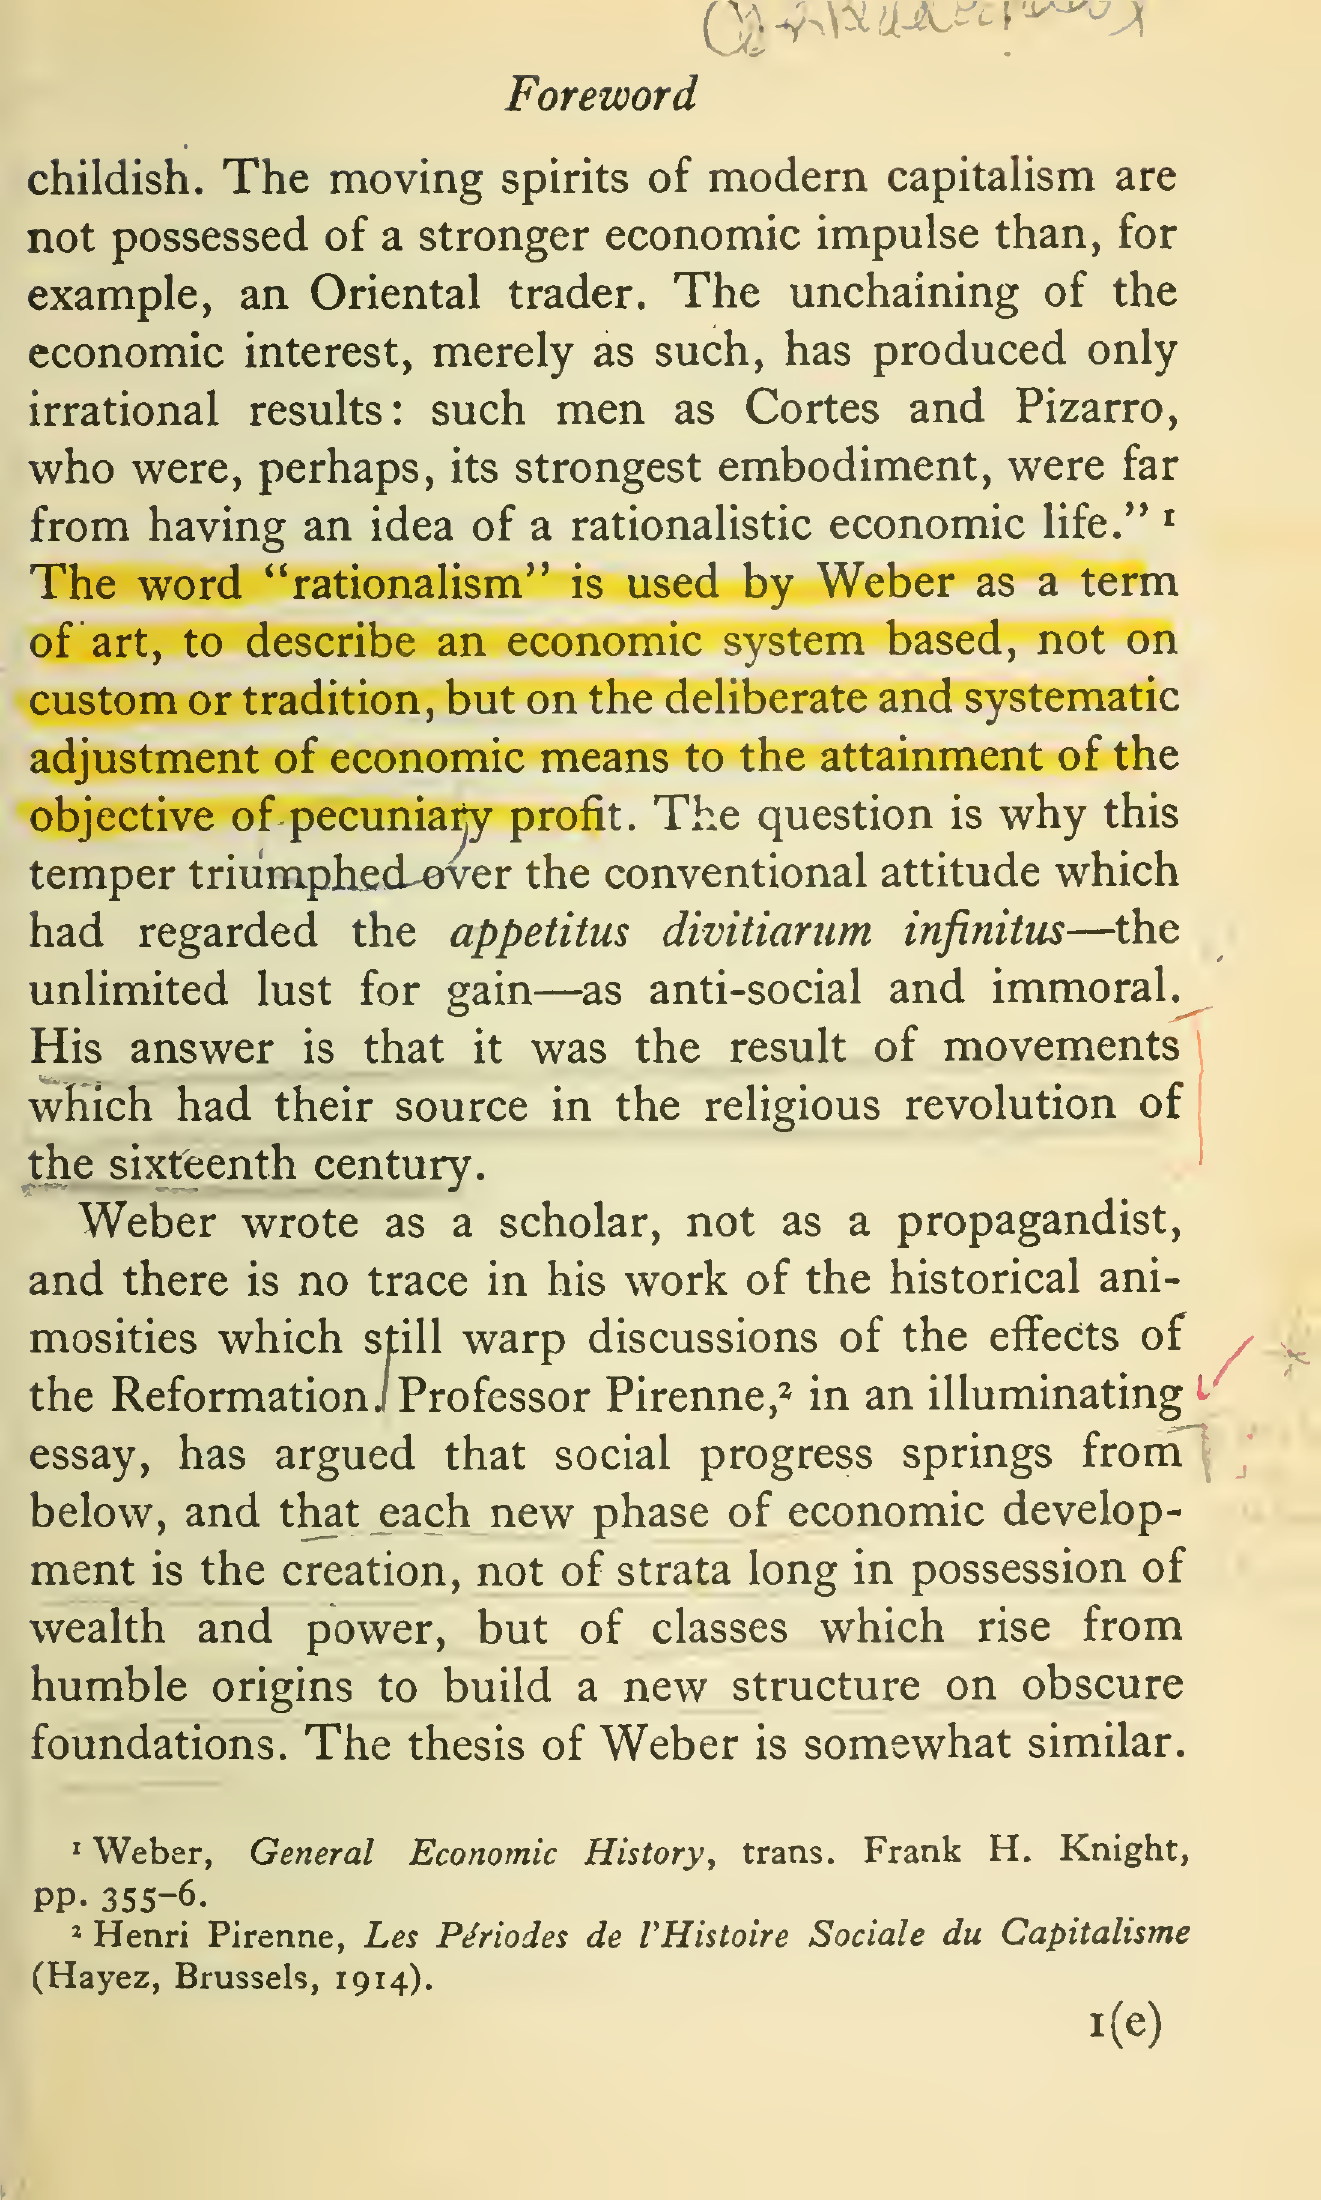 Foreword
childish. The moving spirits of modern capitalism are
not possessed of a stronger economic impulse than, for
example, an Oriental trader. The unchaining of the
economic interest, merely as such, has produced only
irrational results: such men as Cortes and Pizarro,
who were, perhaps, its strongest embodiment, were far
from having an idea of a rationalistic economic life.” ¹
The word “rationalism” is used by Weber as a term
of art, to describe an economic system based, not on
custom or tradition, but on the deliberate and systematic
adjustment of economic means to the attainment of the
objective of pecuniary profit. The question is why this
temper triumphed over the conventional attitude which
had regarded the appetitus divitiarum infinitus—the
unlimited lust for gain—as anti-social and immoral.
His answer is that it was the result of movements
which had their source in the religious revolution of
the sixteenth century.
Weber wrote as a scholar, not as a propagandist,
and there is no trace in his work of the historical ani-
mosities which still warp discussions of the effects of
the Reformation. Professor Pirenne,² in an illuminating
essay, has argued that social progress springs from
below, and that each new phase of economic develop-
ment is the creation, not of strata long in possession of
wealth and power, but of classes which rise from
humble origins to build a new structure on obscure
foundations. The thesis of Weber is somewhat similar.
¹ Weber, General Economic History, trans. Frank H. Knight,
pp. 355–6.
² Henri Pirenne, Les Périodes de l'Histoire Sociale du Capitalisme
(Hayez, Brussels, 1914).
1(e)